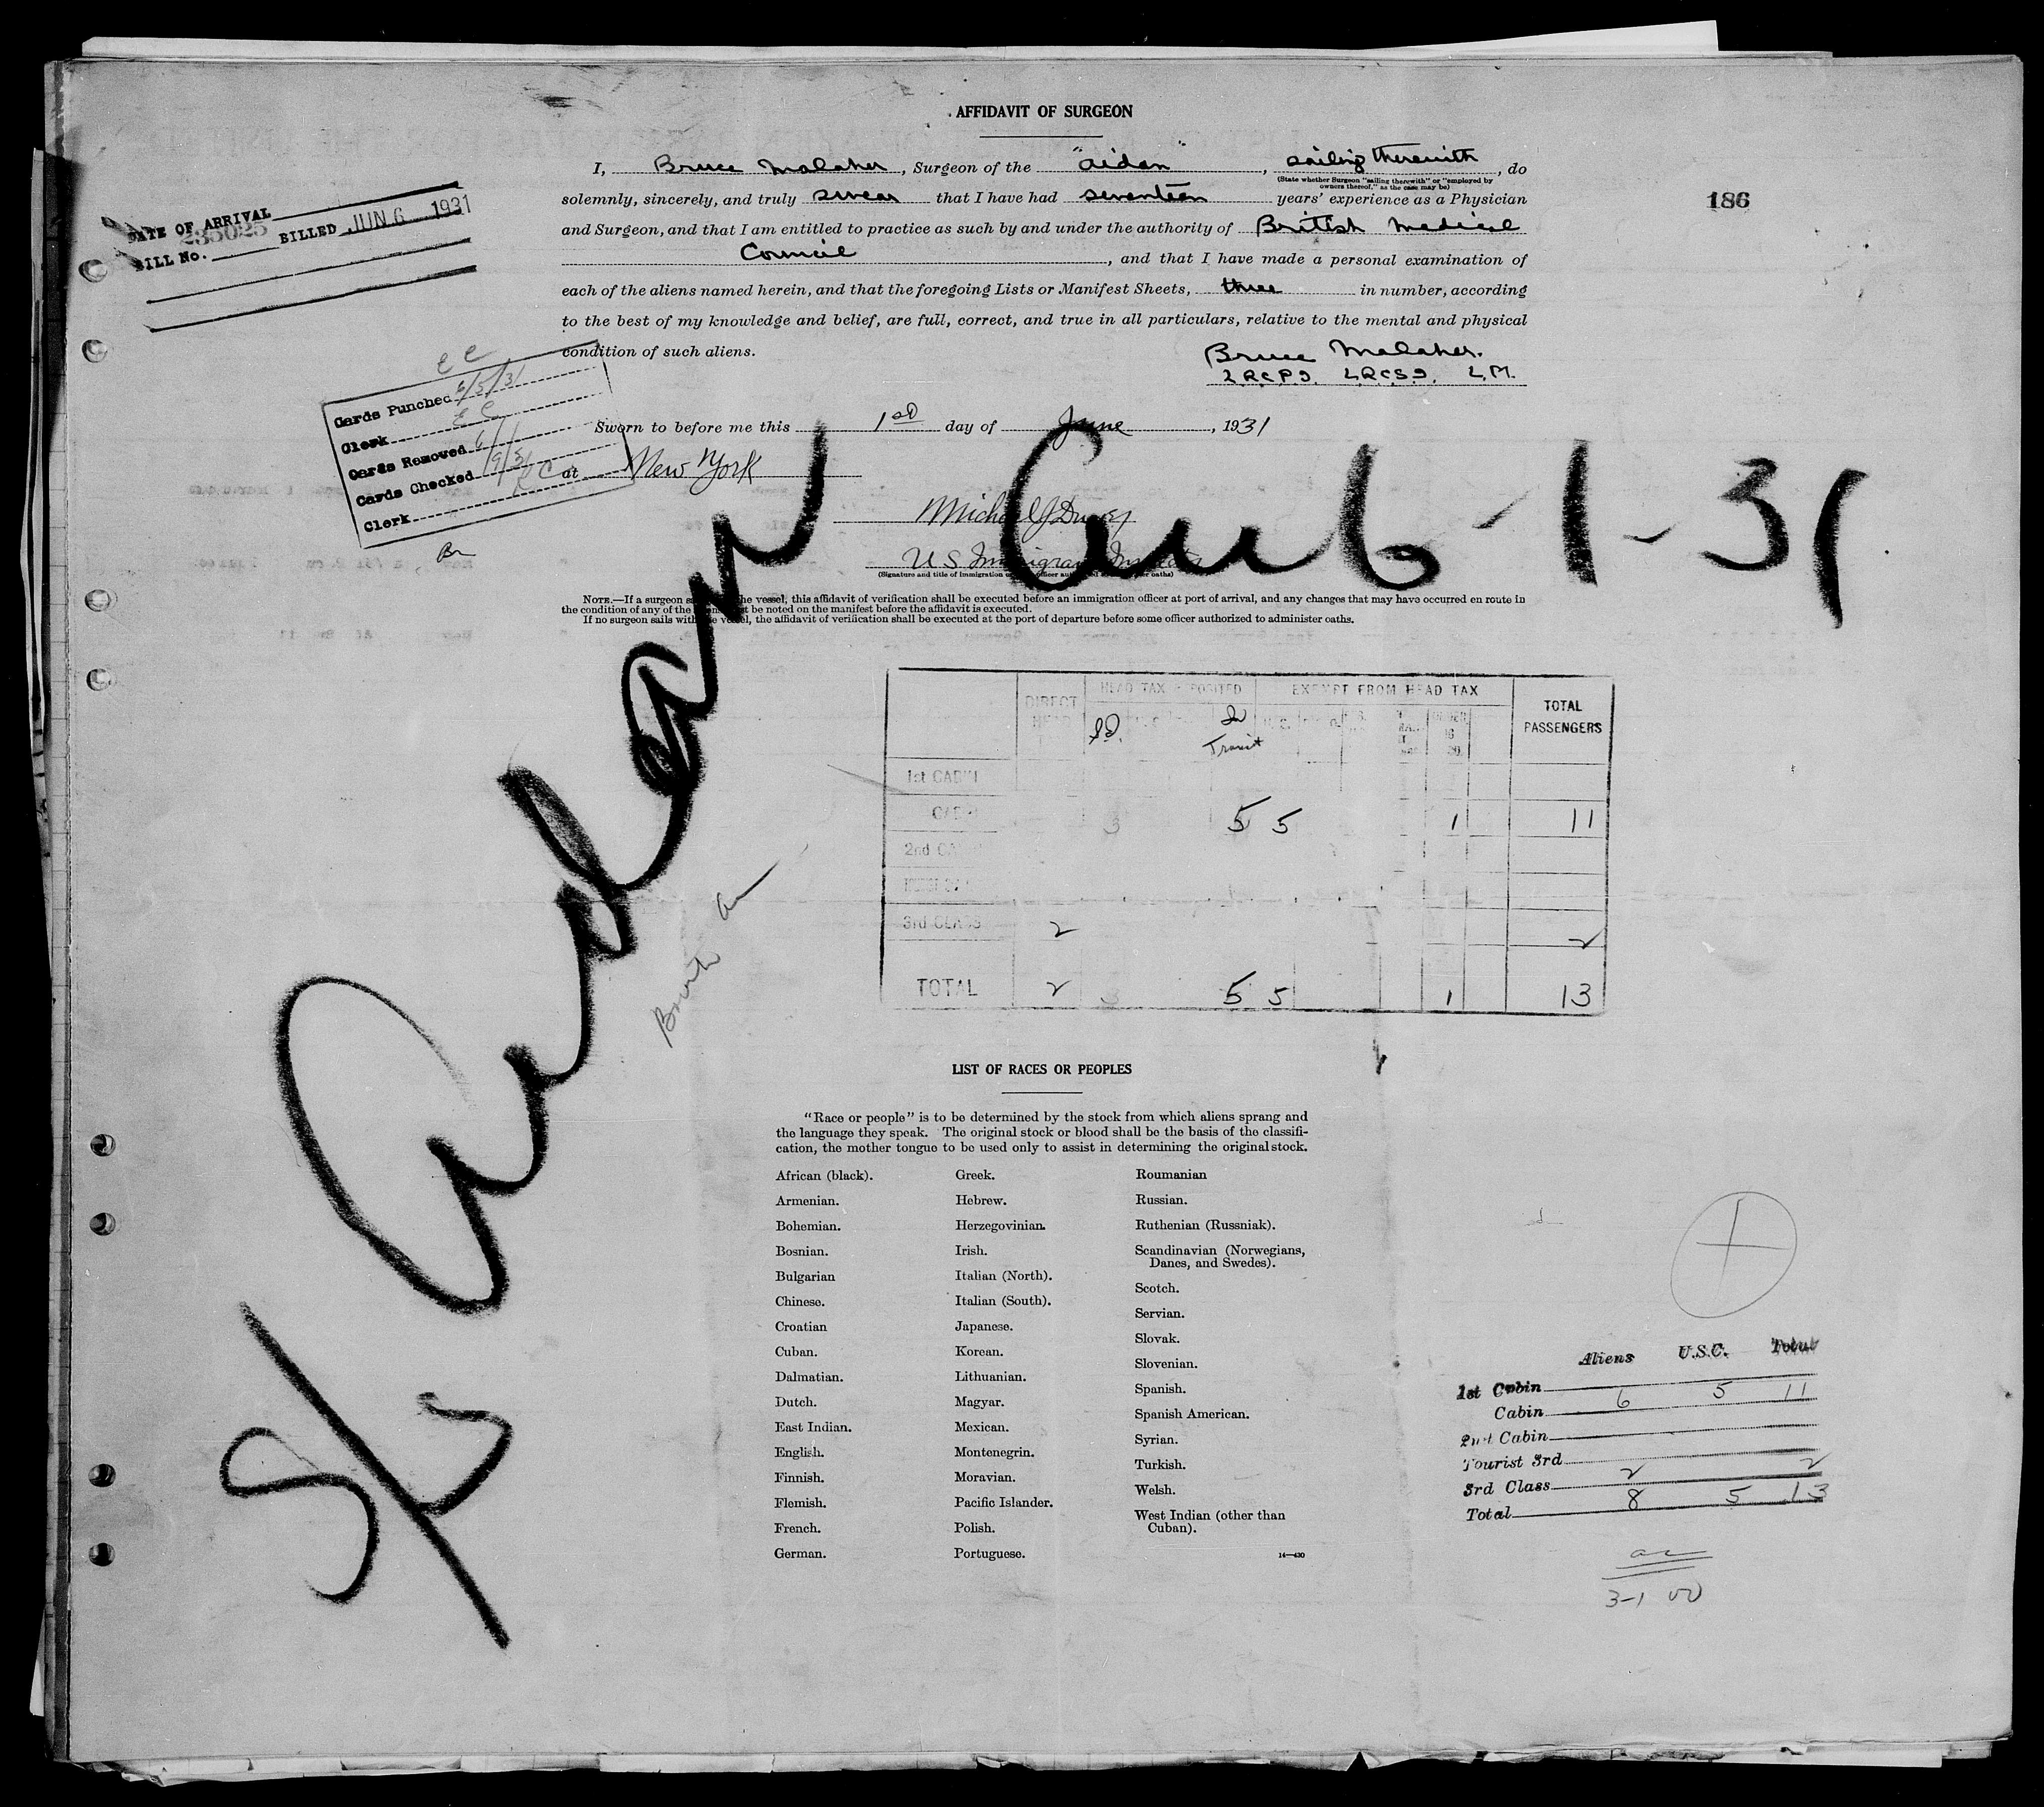 AFFIDAVIT OF SURGEON
I, Bruce Malaher, Surgeon of the "Aidan", sailing therewith, do
(State whether Surgeon "sailing therewith" or "employed by
owners thereof," as the case may be)
solemnly, sincerely, and truly swear that I have had seventeen years' experience as a Physician
and Surgeon, and that I am entitled to practice as such by and under the authority of British Medical
Council, and that I have made a personal examination of
each of the aliens named herein, and that the foregoing Lists or Manifest Sheets, three in number, according
to the best of my knowledge and belief, are full, correct, and true in all particulars, relative to the mental and physical
condition of such aliens.
Bruce Malaher.
L.R.C.P.I. L.R.C.S.I. L.M.
186
DATE OF ARRIVAL
235025
BILL No. BILLED JUN 6 1931
Cards Punched 6/5/31
Clerk E C
Cards Removed
Cards Checked
Clerk
Sworn to before me this 1st day of June, 1931
at New York
Michael J
U S Immigrant Inspector
(Signature and title of immigration officer authorized to administer oaths)
6-1-31
NOTE.—If a surgeon sails with the vessel, this affidavit of verification shall be executed before an immigration officer at port of arrival, and any changes that may have occurred en route in
the condition of any of the aliens must be noted on the manifest before the affidavit is executed.
If no surgeon sails with the vessel, the affidavit of verification shall be executed at the port of departure before some officer authorized to administer oaths.
S/S Aidan
DIRECT HEAD HEAD TAX DEPOSITED EXEMPT FROM HEAD TAX TOTAL PASSENGERS
In Transit
1st CABIN
CABIN 3 5 5 1 11
2nd CABIN
3rd CLASS 2 2
TOTAL 2 3 5 5 1 13
LIST OF RACES OR PEOPLES
"Race or people" is to be determined by the stock from which aliens sprang and
the language they speak. The original stock or blood shall be the basis of the classifi-
cation, the mother tongue to be used only to assist in determining the original stock.
African (black).
Armenian.
Bohemian.
Bosnian.
Bulgarian
Chinese.
Croatian
Cuban.
Dalmatian.
Dutch.
East Indian.
English.
Finnish.
Flemish.
French.
German.
Greek.
Hebrew.
Herzegovinian.
Irish.
Italian (North).
Italian (South).
Japanese.
Korean.
Lithuanian.
Magyar.
Mexican.
Montenegrin.
Moravian.
Pacific Islander.
Polish.
Portuguese.
Roumanian
Russian.
Ruthenian (Russniak).
Scandinavian (Norwegians,
Danes, and Swedes).
Scotch.
Servian.
Slovak.
Slovenian.
Spanish.
Spanish American.
Syrian.
Turkish.
Welsh.
West Indian (other than
Cuban).
14—430
Aliens U.S.C. Total
1st Cabin 6 5 11
Cabin
2nd Cabin
Tourist 3rd
3rd Class 2 2
Total 8 5 13